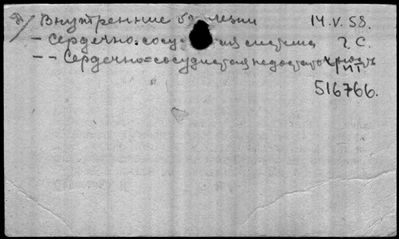 Внутренние болезни 14.V.58.
- Сердечно-сосудистая система 2 С.
-- Сердечно-сосудистая недостаточность
516766.